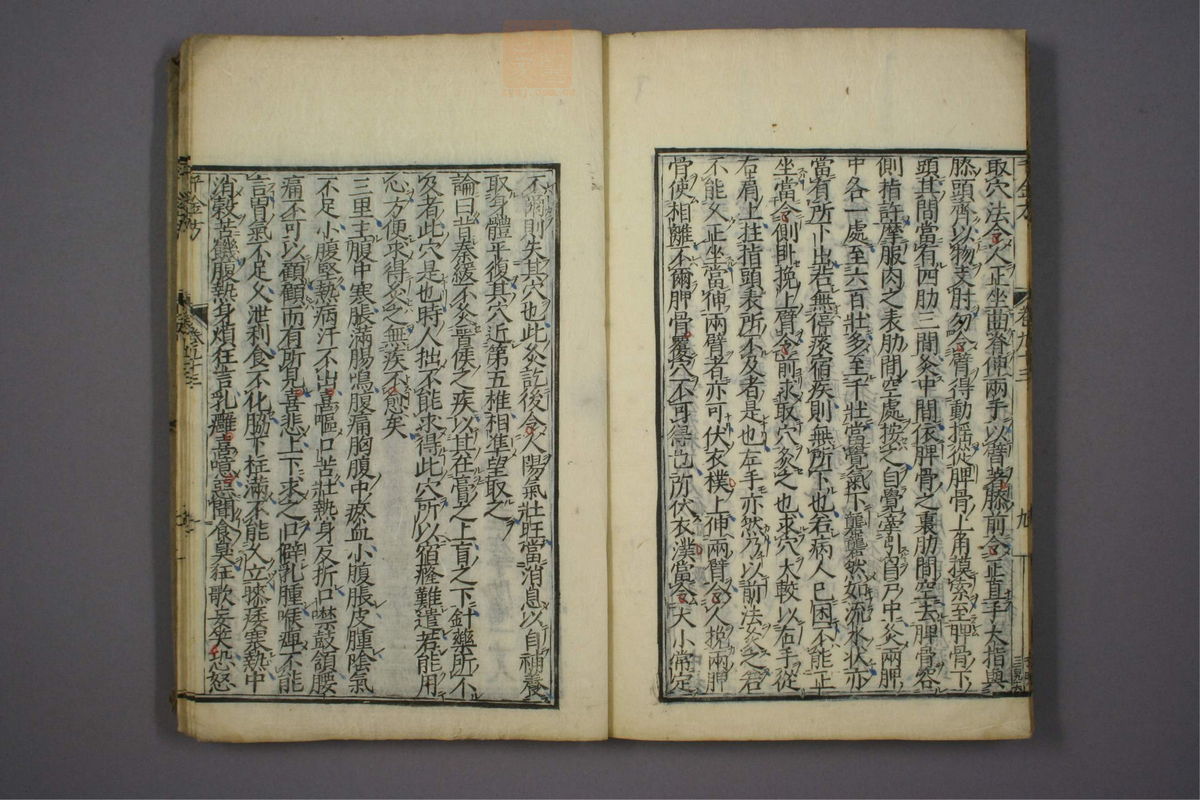 取穴法令人正坐曲脊伸兩手以臂著膝前令正直手大指與
膝頭齊以物支肘勿令臂得動搖從胛骨上角摸索至胛骨下
頭其間當有四肋三間灸中間依胛骨之裏肋間空去胛骨容
側指許摩䏚肉之表肋間空處按之自覺牽引肩中灸兩胛
中各一處至六百壯多至千壯當覺氣下礱礱然如流水狀亦
當有所下出若無停痰宿疾則無所下也若病人已困不能正
坐當令側臥挽上臂令前求取穴灸之也求穴大較以右手從
右肩上住指頭表所不及者是也左手亦然乃以前法灸之若
不能久正坐當伸兩臂者亦可伏衣襆上伸兩臂令人挽兩胛
骨使相離不爾胛骨覆穴不可得也所伏衣襆當令大小常定
不爾則失其穴也此灸訖後令人陽氣壯旺當消息以自補養
取身體平復其穴近第五椎相準望取之
論曰昔秦緩不救晉侯之疾以其在膏之上肓之下針藥所不
及者此穴是也時人拙不能求得此穴所以宿痾難遣若能用
心方便求得灸之無疾不愈矣
三里主腹中寒脹滿腸鳴腹痛胸腹中瘀血小腹脹皮腫陰氣
不足小腹堅熱病汗不出喜嘔口苦壯熱身反折口噤鼓頷腰
痛不可以顧顧而有所見喜悲上下求之口僻乳腫喉痺不能
言胃氣不足久泄利食不化脇下柱滿不能久立膝痿寒熱中
消穀苦饑腹熱身煩狂言乳癰喜噫惡聞食臭狂歌妄笑恐怒
千金方